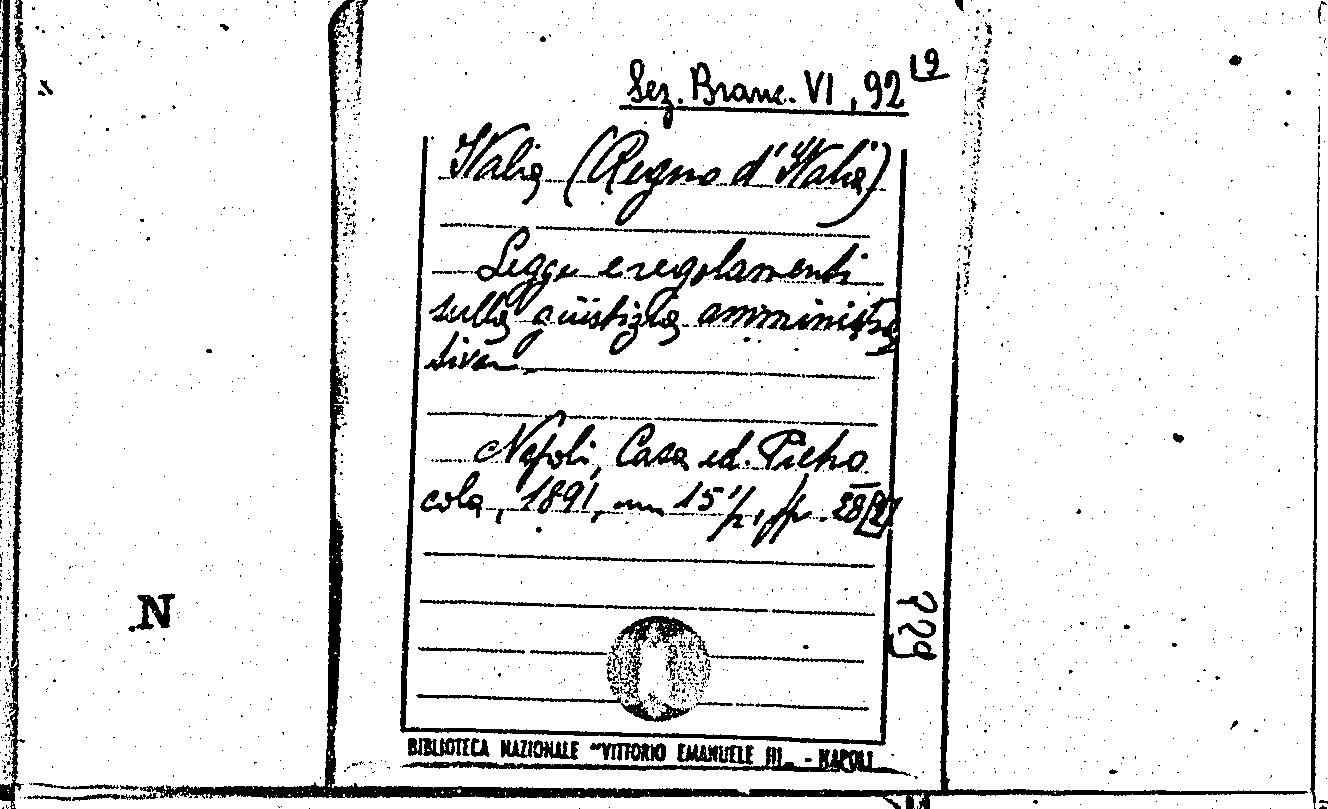 Sez. Branc. VI, 92 19
Italia (Regno d'Italia)
Legge e regolamenti
sulla giustizia amministra
tiva
Napoli, Casa ed. Pietro
cola, 1891, mm 15 1/2, pp. 28 [2]
N
BIBLIOTECA NAZIONALE "VITTORIO EMANUELE III" - NAPOLI